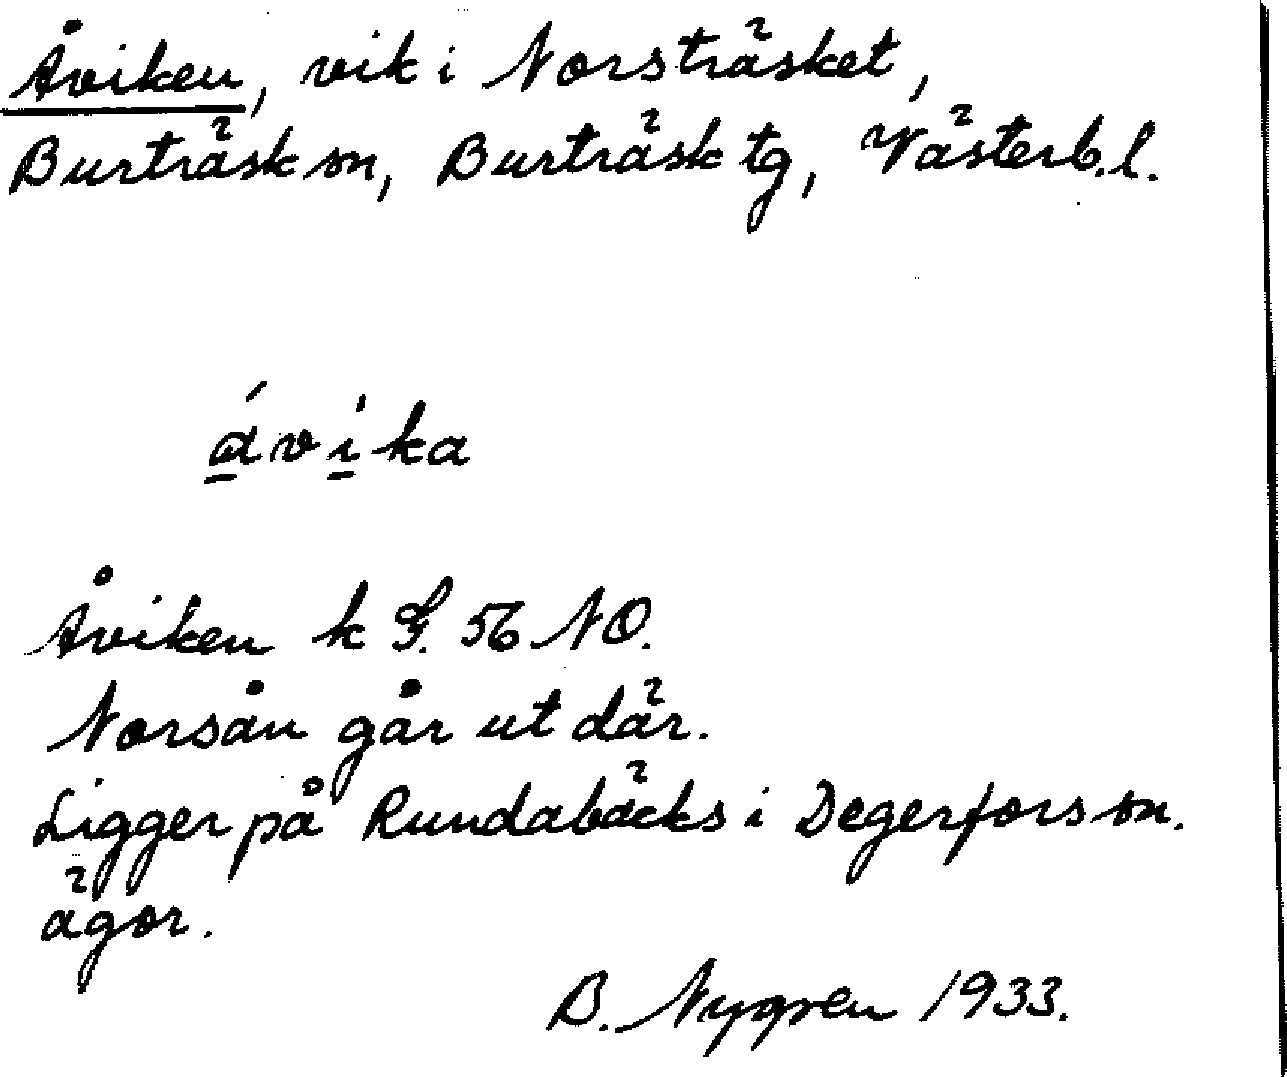 Åviken, vik i Norsträsket,
Burträsk sn, Burträsk tg, Västerb.l.
ávi̱ka
Åviken k G. 56 NO.
Norsån går ut där.
Ligger på Rundabäcks i Degerfors sn.
ägor.
B. Nygren 1933.